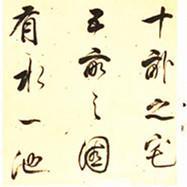 十畝之宅
五畝之園
有水一池